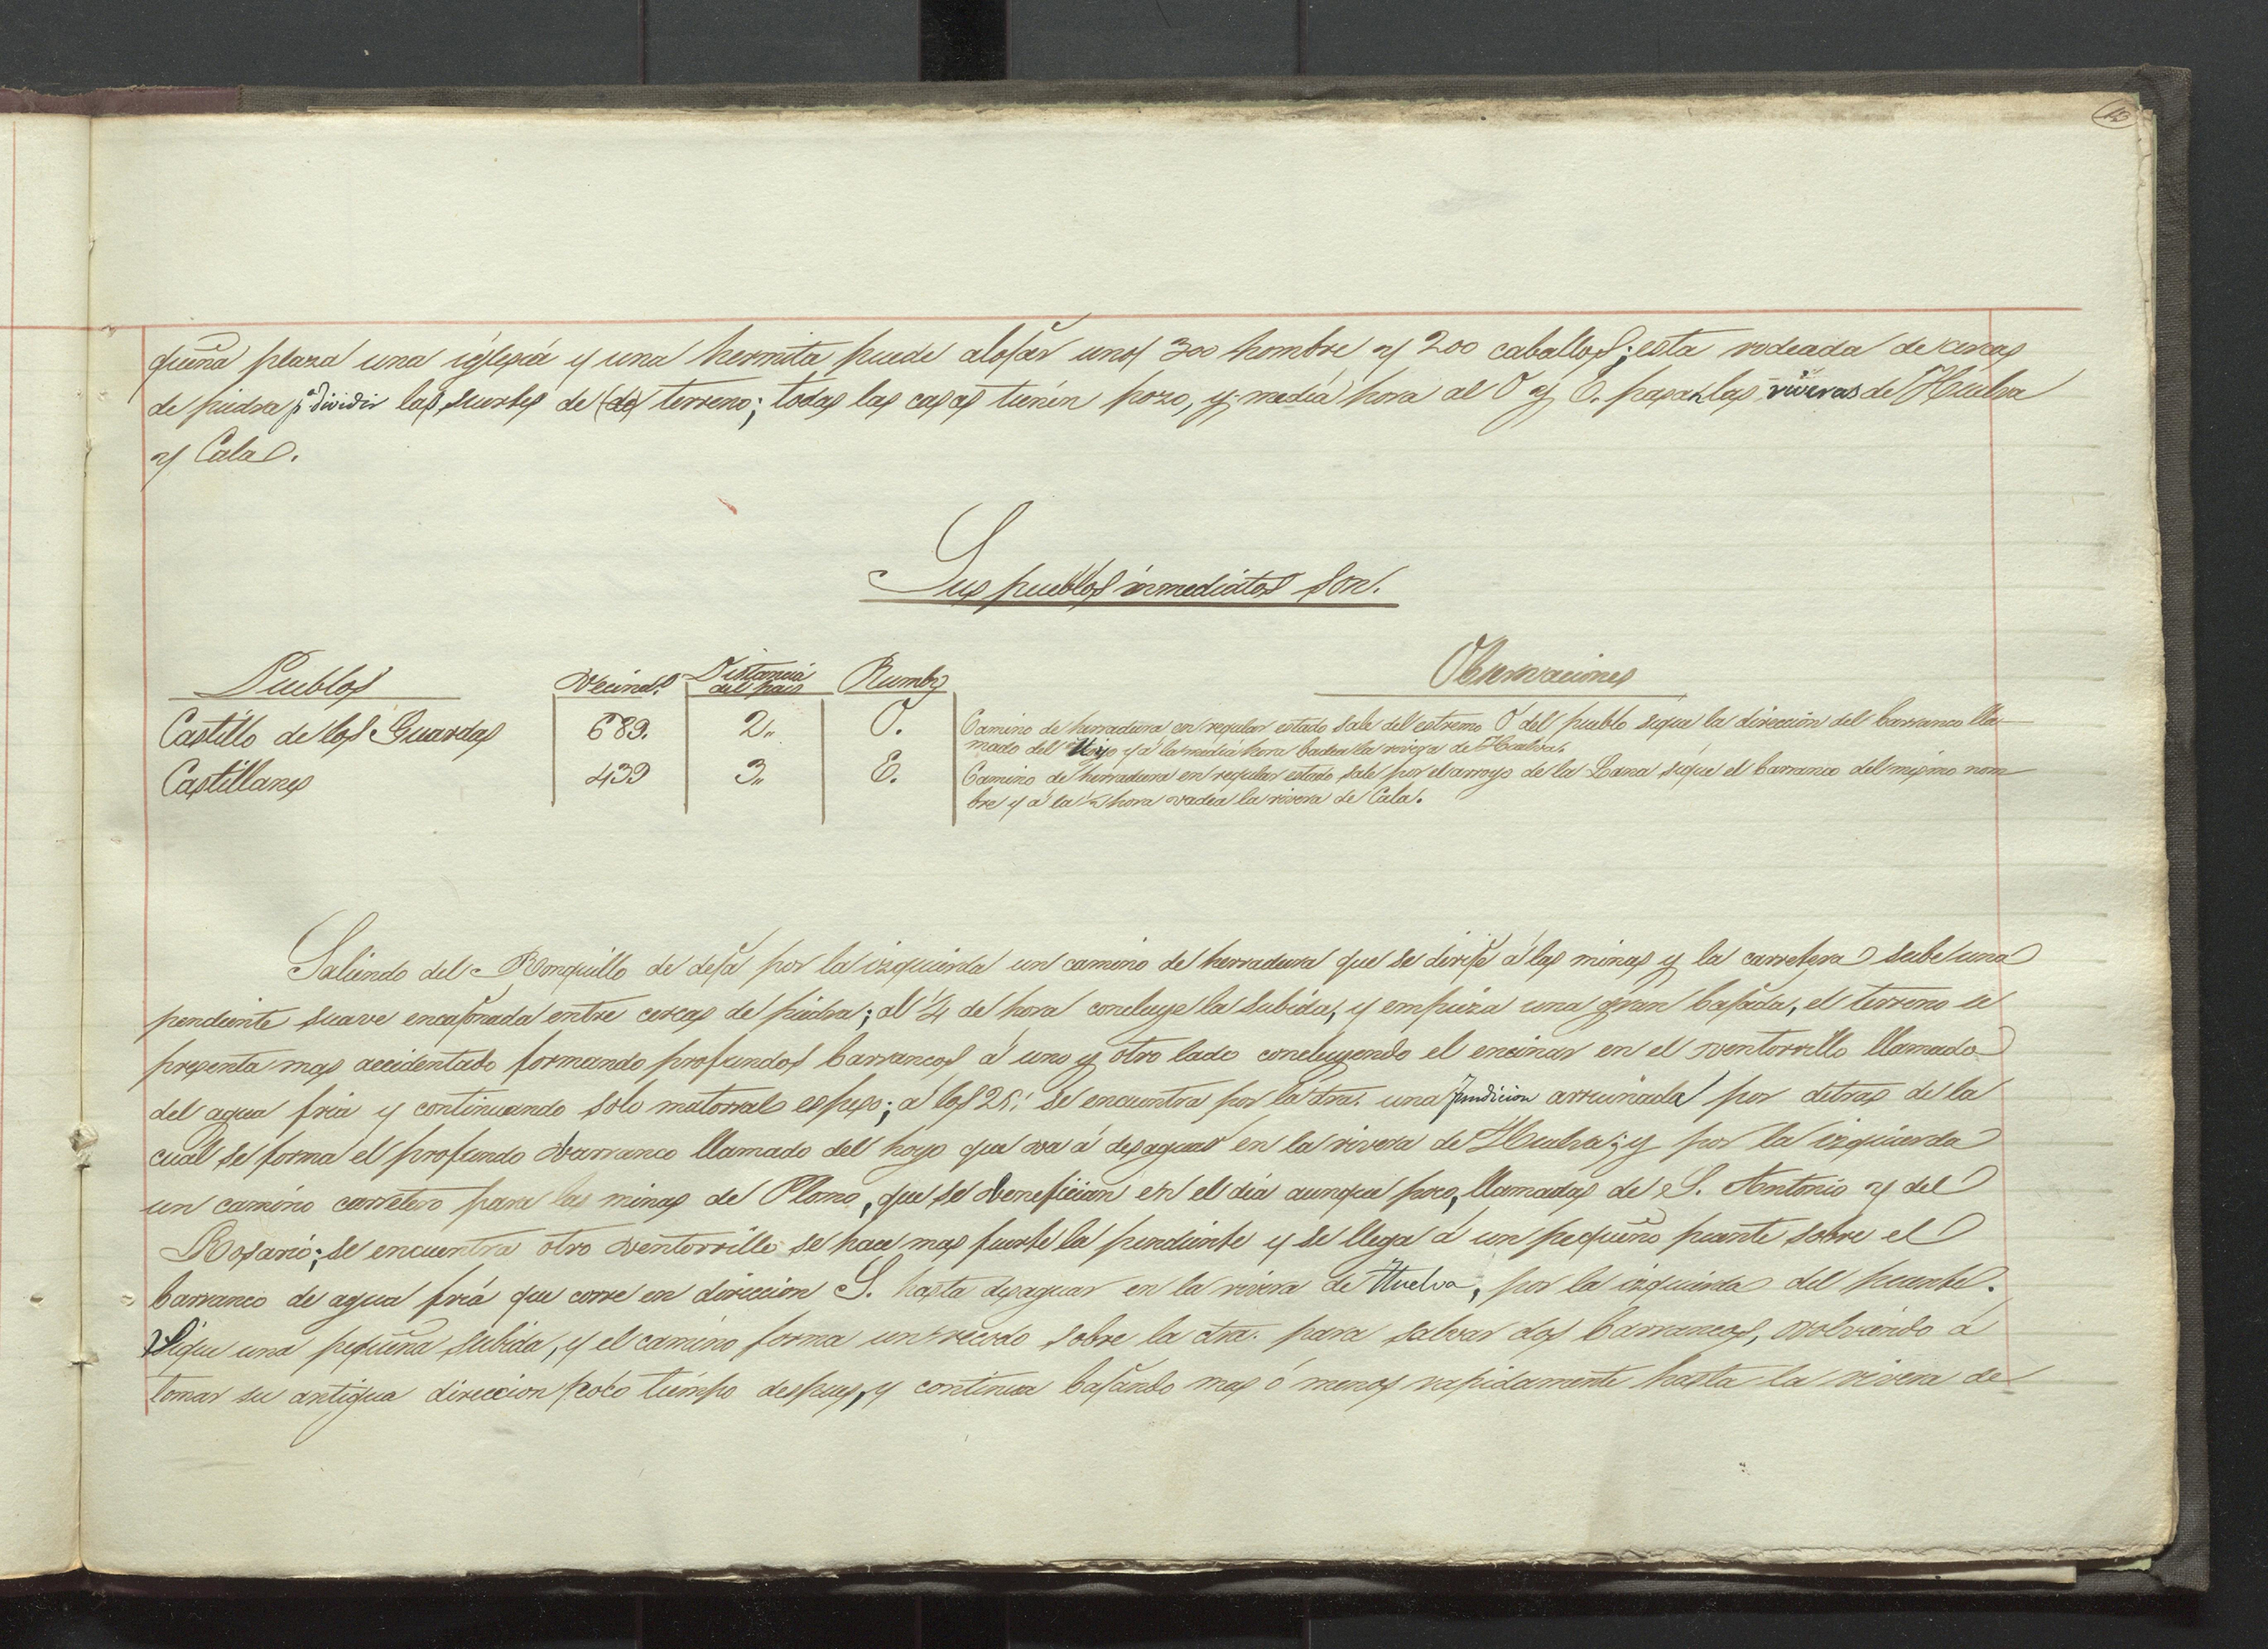 queña plaza una iglesia y una hermita puede alojar unos 300 hombre y 200 caballos; esta rodeada de cercas
de piedra pª dividir las suertes de (de) terreno; todas las casas tienen pozo, y media hora al O y E. pasan las riveras de Huelva
y Cala.
Sus pueblos inmediatos son.
Pueblos Vecinos. Distancia del pais Rumbo Observaciones
Castillo de los Guardas 689. 2,, O. Camino de herradura en regular estado sale del estremo O del pueblo sigue la dirección del barranco lla-
mado del Hoyo y á la media hora badea la rivera de Huelva.
Castillanes 439 3,, E. Camino de herradura en regular estado sale por el arroyo de la Lana sigue el barranco del mismo nom
bre y á la ½ hora vadea la rivera de Cala.
Saliendo del Ronquillo de deja por la izquierda un camino de herradura que se dirije á las minas y la carretera sube una
pendiente suave encajonada entre cercas de piedra; al ¼ de hora concluye la subida, y empieza una gran bajada, el terreno se
presenta mas accidentado formando profundos barrancos á uno y otro lado concluyendo el encinar en el ventorrillo llamado
del agua fria y continuando solo matorral espeso; á los 25' se encuentra por la dra. una fundicion arruinada por detras de la
cual se forma el profundo barranco llamado del hoyo que va á desaguar en la rivera de Huelva; y por la izquierda
un camino carretero para las minas de Plomo, que se benefician en el dia aunque poco, llamadas de S. Antonio y del
Rosario; se encuentra otro ventorrillo se hace mas fuerte la pendiente y se llega á un pequeño puente sobre el
barranco de agua fria que corre en direccion S. hasta desaguar en la rivera de Huelva, por la izquierda del puente.
Sigue una pequeña subida, y el camino forma un recodo sobre la dra. para salvar dos barrancos, volviendo á
tomar su antigua direccion poco tiempo despues, y continua bajando mas ó menos rapidamente hasta la rivera de